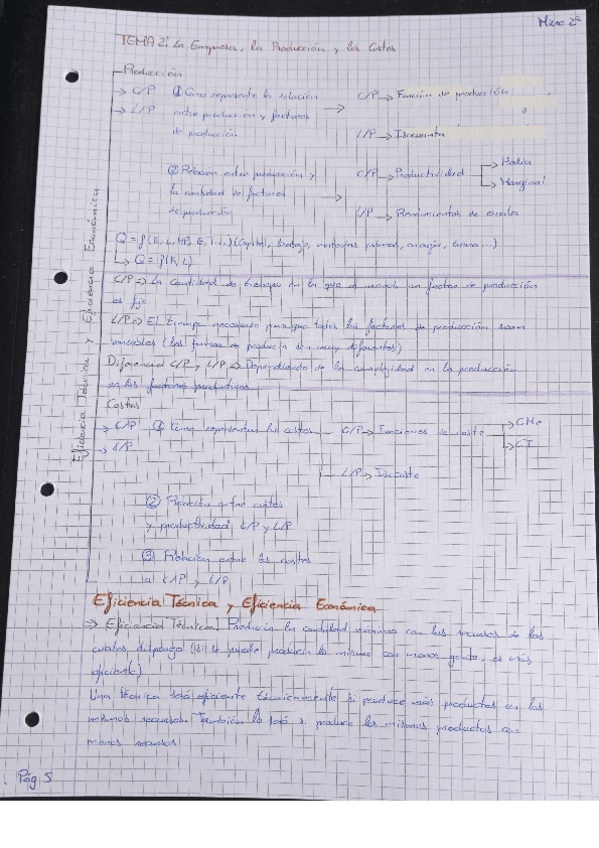 Micro 2º
TEMA 2: La Empresa, la Producción y los Costes
Producción
→ C/P ① Cómo represento la relación → C/P → Función de producción
→ L/P entre producción y factores
de producción L/P → Isocuanta
② Relación entre producción y C/P → Productividad → Media
la cantidad de factores → → Marginal
de producción L/P → Rendimientos de escala
Q = f(K, L, MP, E, T...) (Capital, trabajo, materias primas, energía, tierra...)
→ Q = f(K, L)
C/P ⇒ La cantidad de tiempo en la que al menos un factor de producción
es fijo.
L/P ⇒ El tiempo necesario para que todos los factores de producción sean
variables (los de producción son muy diferentes)
Diferencia C/P y L/P ⇒ Dependiendo de la en la producción
en los factores productivos
Costes
→ C/P ① Cómo represento los costes C/P → Funciones de coste → CMe
→ L/P → CT
L/P → Isocoste
② Relación entre costes
y productividad C/P y L/P
③ Relación entre los costes
a C/P y L/P
Eficiencia Técnica y Eficiencia Económica
Eficiencia Técnica y Eficiencia Económica
⇒ Eficiencia Técnica: Producir la cantidad máxima con los recursos de los
cuales dispongo (si se puede producir lo mismo con menos gente, es más
eficiente)
Una técnica será eficiente técnicamente si produce más productos con los
mismos recursos. También lo será si produce los mismos productos con
menos recursos
Pág 5